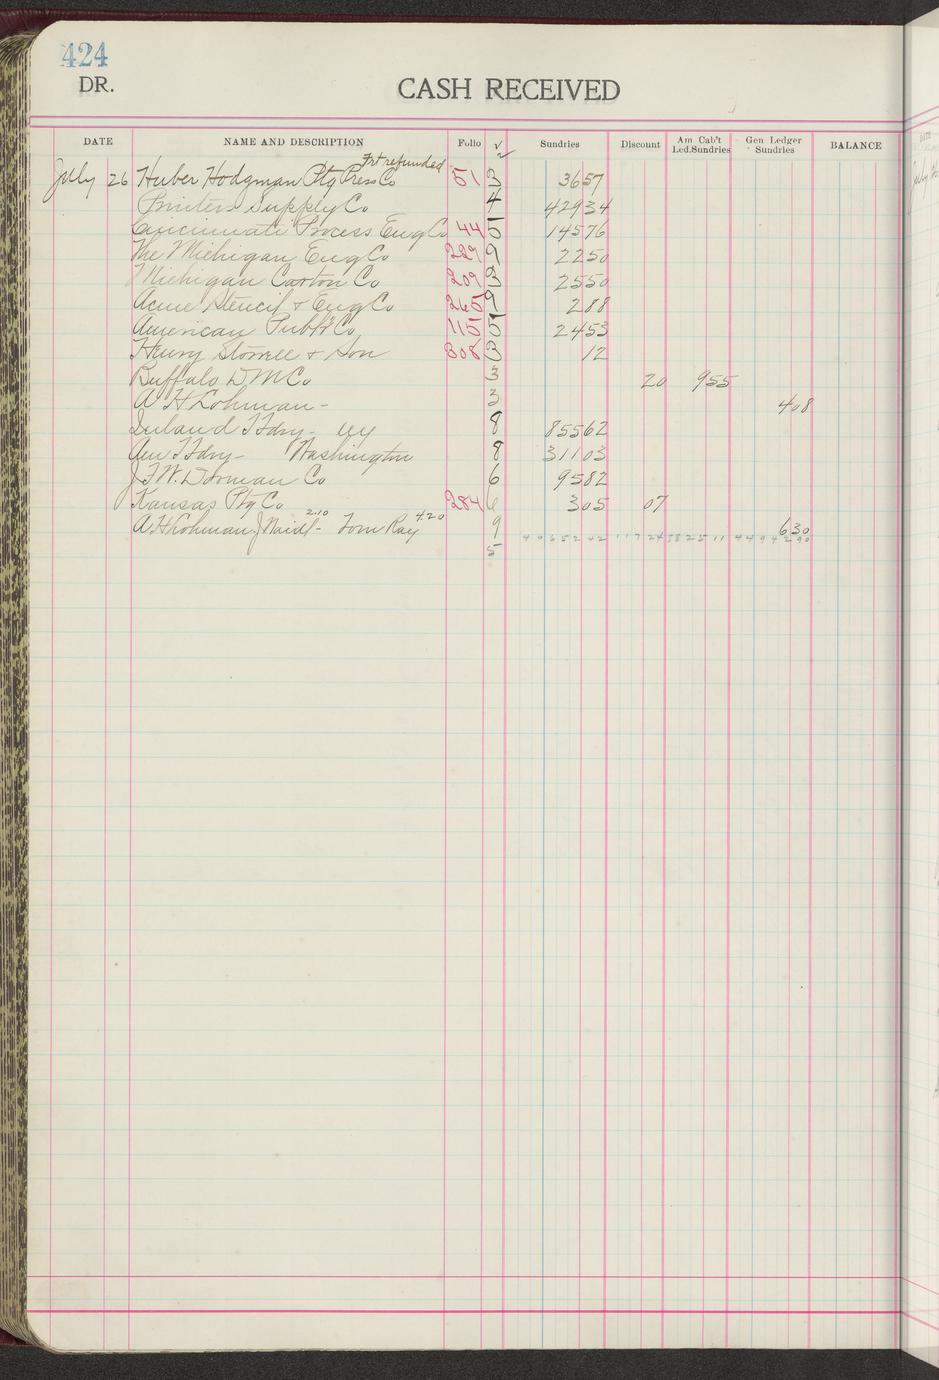 424
DR.
CASH RECEIVED
DATE NAME AND DESCRIPTION Folio √ Sundries Discount Am Cab't Led.Sundries Gen Ledger Sundries BALANCE
Frt refunded 2
July 26 Huber Hodgman Ptg Press Co 51 3 3657
Printers Supply Co 4 42934
Cincinnati Process Eng Co 44 5 14576
The Michigan Eng Co 229 9 2250
Michigan Carton Co 209 3 2550
Acme Stencil & Eng Co 265 9 288
American Publ Co 115 5 2453
Henry & Son 308 3 12
Buffalo D M Co 3 20 955
A H Lohman - 3 408
Inland T Fdry - NY 8 85562
Am T Fdry - Washington 8 31103
J F W. Dorman Co 6 9582
Kansas Ptg Co 284 6 305 07
A H Lohman, J Maidl - 2.10 Tom Ray 4.20 9 630
5 40652 42 117 24 5825 11 44942 90